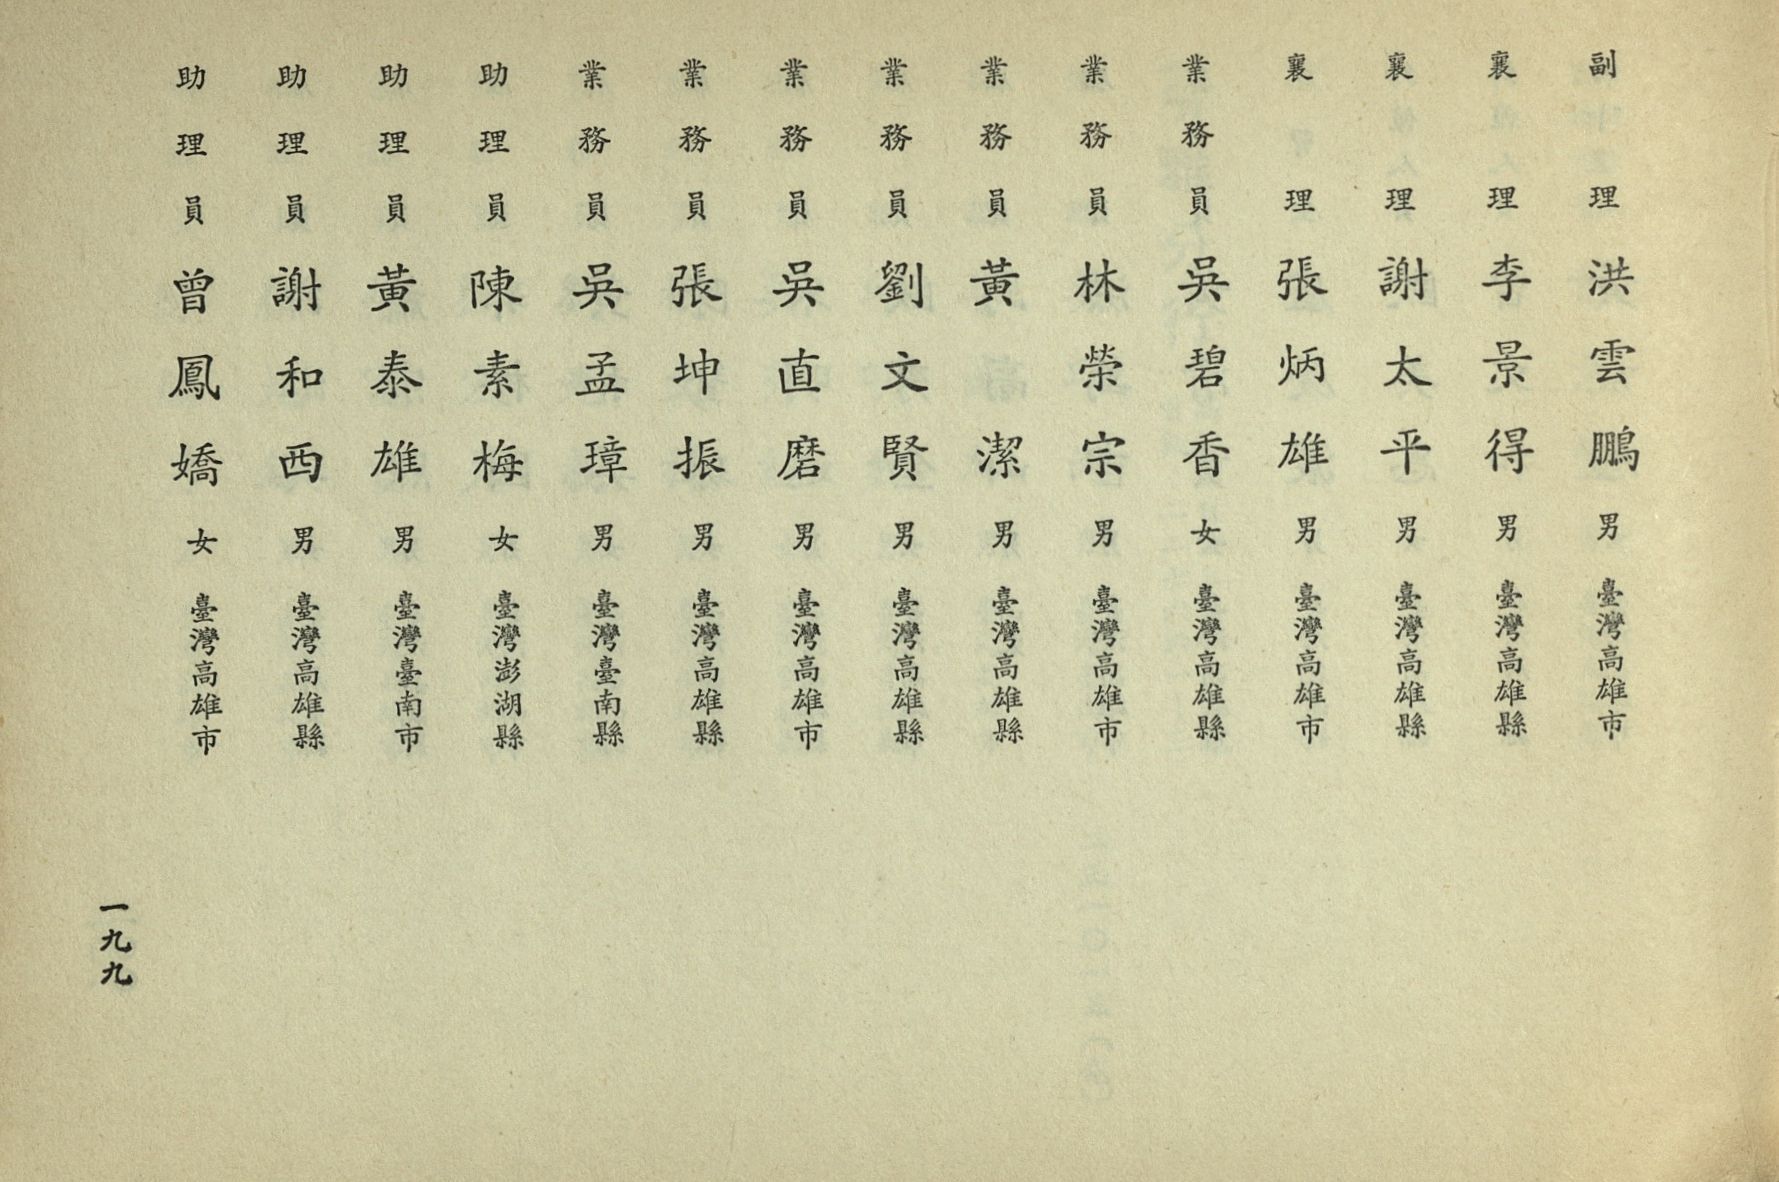 副理洪雲鵬男臺灣高雄市
襄理李景得男臺灣高雄縣
襄理謝太平男臺灣高雄縣
襄理張炳雄男臺灣高雄市
業務員吳碧香女臺灣高雄縣
業務員林榮宗男臺灣高雄市
業務員黃潔男臺灣高雄縣
業務員劉文賢男臺灣高雄縣
業務員吳直磨男臺灣高雄市
業務員張坤振男臺灣高雄縣
業務員吳孟璋男臺灣臺南縣
助理員陳素梅女臺灣澎湖縣
助理員黃泰雄男臺灣臺南市
助理員謝和西男臺灣高雄縣
助理員曾鳳嬌女臺灣高雄市
一九九